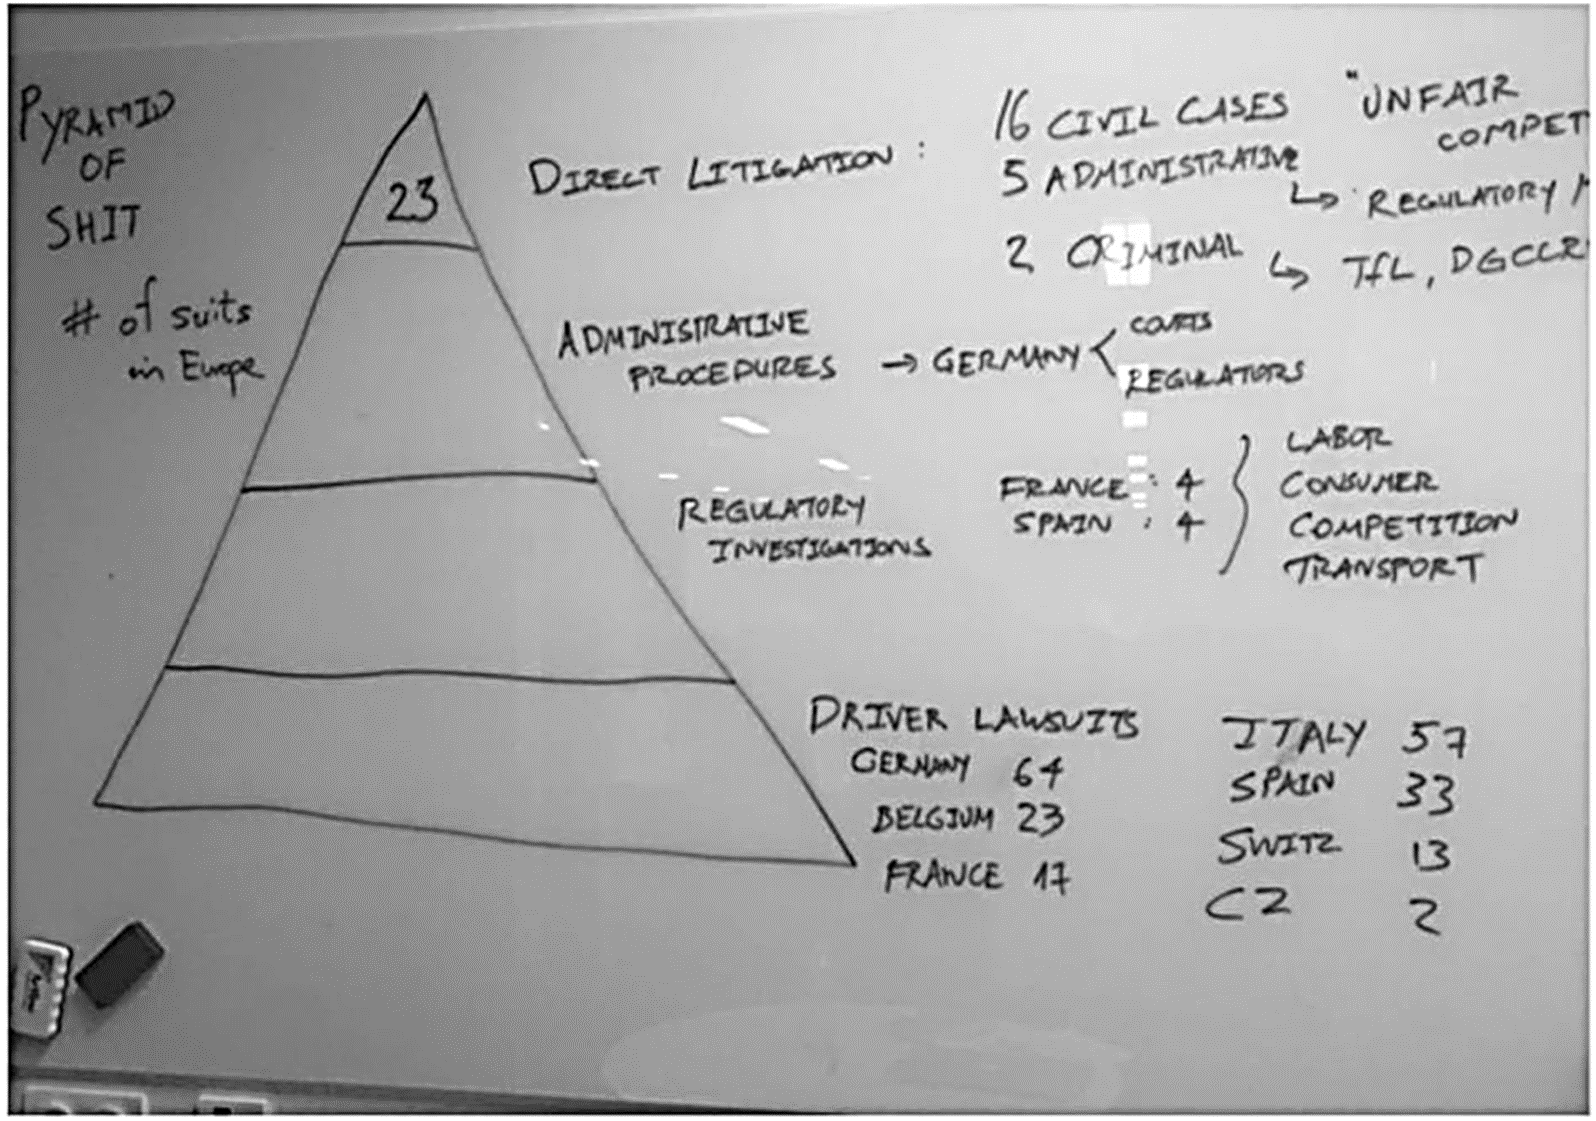 PYRAMID
OF
SHIT
# of suits
in Europe
23
DIRECT LITIGATION :
16 CIVIL CASES "UNFAIR
COMPET
5 ADMINISTRATIVE
↳ REGULATORY
2 CRIMINAL ↳ TfL, DGCCR
ADMINISTRATIVE
PROCEDURES → GERMANY < COURTS
REGULATORS
REGULATORY
INVESTIGATIONS
FRANCE : 4
SPAIN : 4
} LABOR
CONSUMER
COMPETITION
TRANSPORT
DRIVER LAWSUITS
GERMANY 64
BELGIUM 23
FRANCE 17
ITALY 57
SPAIN 33
SWITZ 13
CZ 2